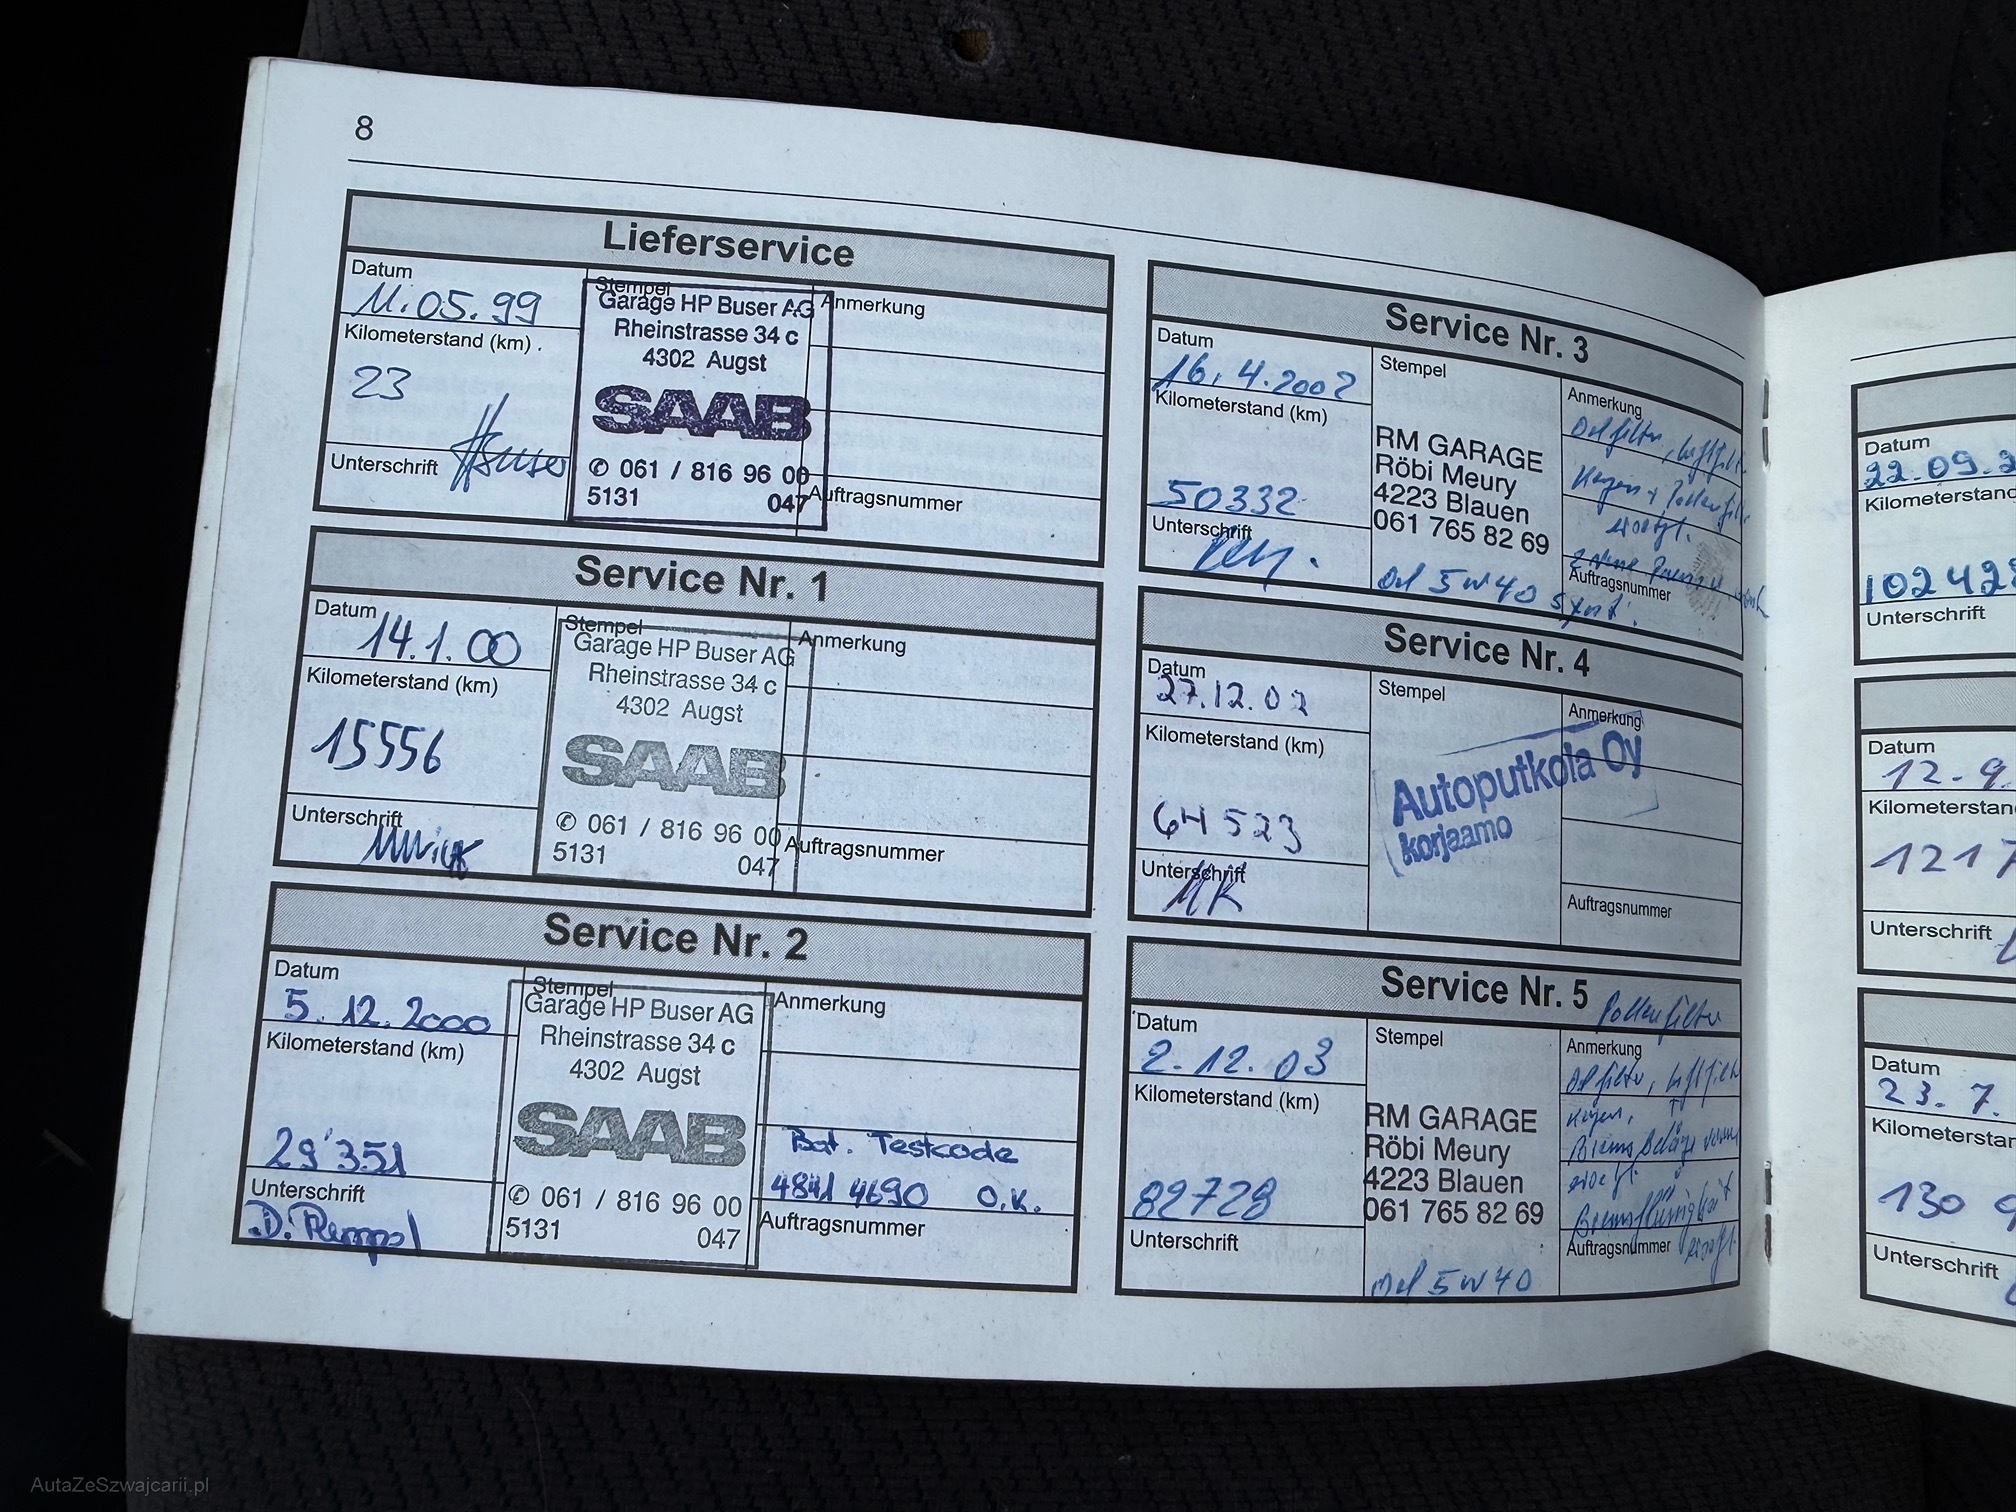 8
Lieferservice
Datum
11.05.99
Kilometerstand (km)
23
Unterschrift
Stempel
Garage HP Buser AG
Rheinstrasse 34 c
4302 Augst
SAAB
✆ 061 / 816 96 00
5131 047
Anmerkung
Auftragsnummer
Service Nr. 1
Datum
14.1.00
Kilometerstand (km)
15556
Unterschrift
Stempel
Garage HP Buser AG
Rheinstrasse 34 c
4302 Augst
SAAB
✆ 061 / 816 96 00
5131 047
Anmerkung
Auftragsnummer
Service Nr. 2
Datum
5.12.2000
Kilometerstand (km)
29'351
Unterschrift
D. Rempel
Stempel
Garage HP Buser AG
Rheinstrasse 34 c
4302 Augst
SAAB
✆ 061 / 816 96 00
5131 047
Anmerkung
Bat. Testcode
4841 4690 O.K.
Auftragsnummer
Service Nr. 3
Datum
16.4.2002
Kilometerstand (km)
50332
Unterschrift
Stempel
RM GARAGE
Röbi Meury
4223 Blauen
061 765 82 69
Oel 5W40
Anmerkung
Oelfilter, Luftfilt
Kerzen + Pollenfilt
ersetzt.
Auftragsnummer
Service Nr. 4
Datum
27.12.02
Kilometerstand (km)
64523
Unterschrift
MK
Stempel
Autoputkola Oy
korjaamo
Anmerkung
Auftragsnummer
Service Nr. 5
Pollenfilter
Datum
2.12.03
Kilometerstand (km)
82728
Unterschrift
Stempel
RM GARAGE
Röbi Meury
4223 Blauen
061 765 82 69
Oel 5W40
Anmerkung
Oelfilter, Luftfilt
Kerzen,
Brems Beläge vorn
ersetzt.
Bremsflüssigkeit
ersetzt.
Auftragsnummer
Datum
22.09.2
Kilometerstand
102428
Unterschrift
Datum
12.9.
Kilometerstan
1217
Unterschrift
Datum
23.7.
Kilometerstan
130
Unterschrift
AutaZeSzwajcarii.pl